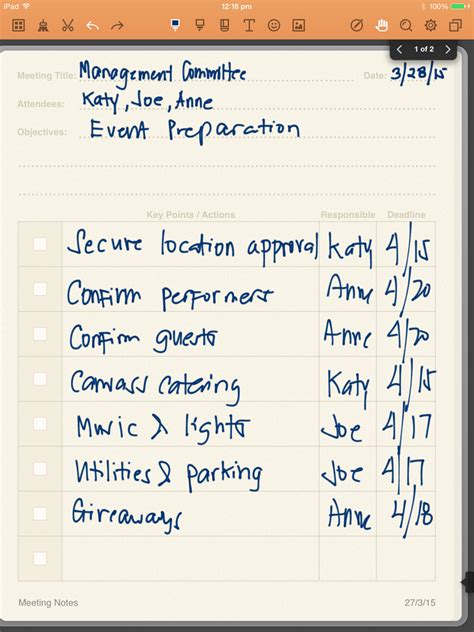 iPad 12:16 pm 100%
1 of 2
Meeting Title: Management Committee Date: 3/28/15
Attendees: Katy, Joe, Anne
Objectives: Event Preparation
Key Points / Actions Responsible Deadline
Secure location approval Katy 4/15
Confirm performers Anne 4/20
Confirm guests Anne 4/20
Canvass catering Katy 4/15
Music & lights Joe 4/17
Utilities & parking Joe 4/17
Giveaways Anne 4/18
Meeting Notes 27/3/15